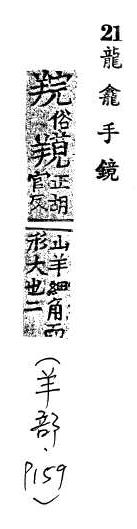 21 龍龕手鏡
羦俗 正胡
官反
山羊細角而
形大也二
(羊部, P159)